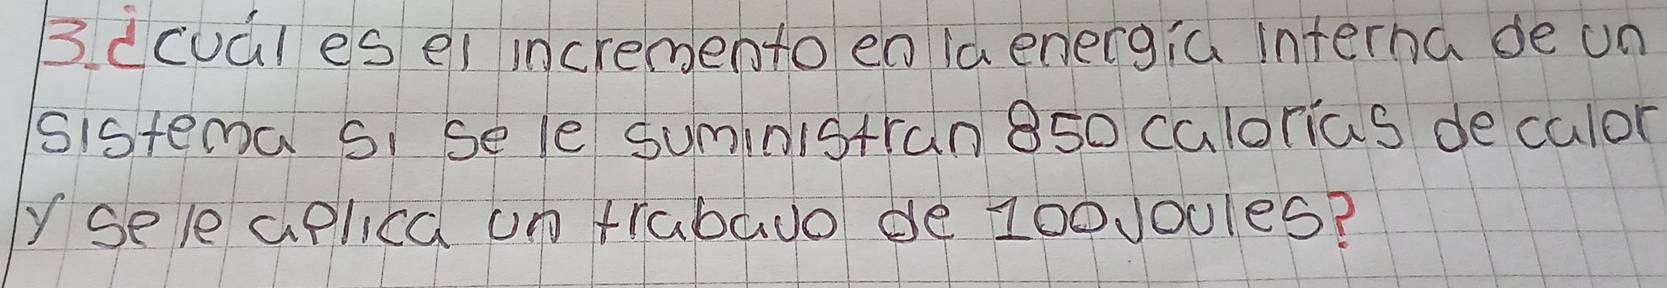 3. ¿cuál es el incremento en la energía interna de un
sistema si se le suministran 850 calorías de calor
y se le aplica un trabajo de 100 Joules?